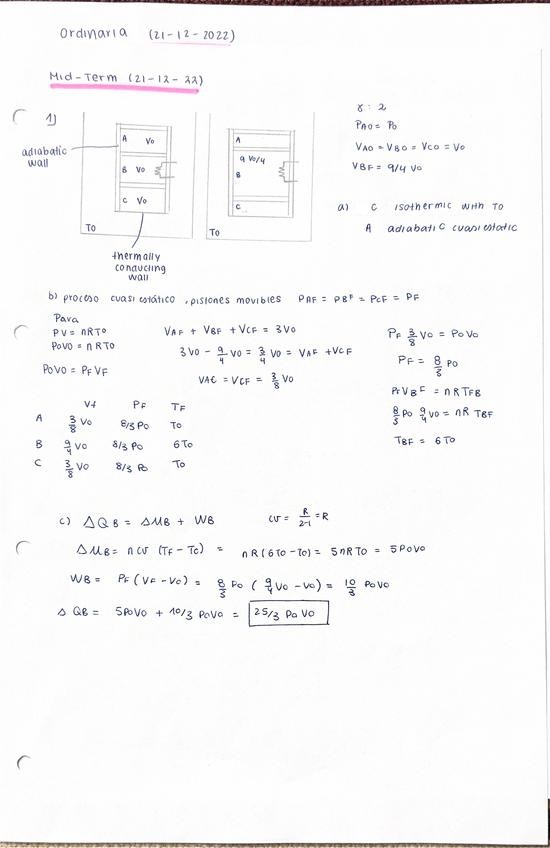 Ordinaria (21-12-2022)
Mid-Term (21-12-22)
1)
adiabatic wall
A Vo
B Vo
C Vo
To
thermally conducting wall
A
9 Vo/4
B
C
To
γ: 2
PAO = Po
VAO = VBO = VCO = Vo
VBF = 9/4 Vo
a) C isothermic with To
A adiabatic cuasiestatic
b) proceso cuasiestático, pistones movibles PAF = PBF = PCF = PF
Para
PV = nRTo
PoVo = nRTo
PoVo = PFVF
VAF + VBF + VCF = 3Vo
3Vo - 9/4 Vo = 3/4 Vo = VAF + VCF
VAC = VCF = 3/8 Vo
PF 3/8 Vo = PoVo
PF = 8/3 Po
PFVBF = nRTFB
8/3 Po 9/4 Vo = nR TBF
TBF = 6To
Vf PF TF
A 3/8 Vo 8/3 Po To
B 9/4 Vo 8/3 Po 6To
C 3/8 Vo 8/3 Po To
c) ΔQB = ΔMB + WB cv = R/2-1 = R
ΔMB = n cv (TF - Tc) = nR(6To-To) = 5nRTo = 5PoVo
WB = PF(VF-Vo) = 8/3 Po (9/4 Vo - Vo) = 10/3 PoVo
Δ QB = 5PoVo + 10/3 PoVo = 25/3 Po Vo